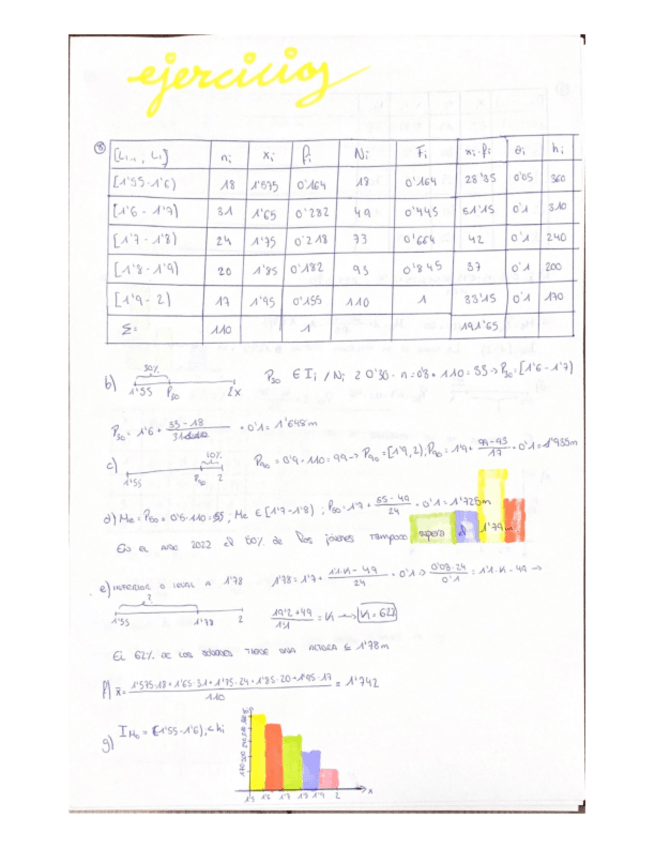 ejercicios
8
[Li-1, Li] ni xi fi Ni Fi xi·fi ai hi
[1'55-1'6) 18 1'575 0'164 18 0'164 28'35 0'05 360
[1'6 - 1'7) 31 1'65 0'282 49 0'445 51'15 0'1 310
[1'7 - 1'8) 24 1'75 0'218 73 0'664 42 0'1 240
[1'8 - 1'9) 20 1'85 0'182 93 0'845 37 0'1 200
[1'9 - 2) 17 1'95 0'155 110 1 33'15 0'1 170
Σ= 110 1 191'65
30%
b) 1'55 P30 2 x P30 ∈ Ii / Ni ≥ 0'30 · n = 0'3 · 110 = 33 → P30 = [1'6 - 1'7)
P30 = 1'6 + 33 - 18 / 31 · 0'1 = 1'648m
10%
c) 1'55 P90 2 P90 = 0'9 · 110 = 99 → P90 = [1'9, 2), P90 = 1'9 + 99-93 / 17 · 0'1 = 1'935m
d) Me = P50 = 0'5 · 110 = 55, Me ∈ [1'7 - 1'8); P50 = 1'7 + 55 - 49 / 24 · 0'1 = 1'725m
En el año 2022 el 50% de los jóvenes tampoco supera el 1'74m
e) inferior o igual a 1'78 1'78 = 1'7 + 1'1·K - 49 / 24 · 0'1 → 0'08·24 / 0'1 = 1'1·K - 49 →
?
1'55 1'78 2 19'2+49 / 1'1 = K → K = 62
El 62% de los jóvenes tiene una altura ≤ 1'78m
f) x̄ = 1'575·18 + 1'65·31 + 1'75·24 + 1'85·20 + 1'95·17 / 110 = 1'742
g) IMo = [1'55 - 1'6), < hi
x